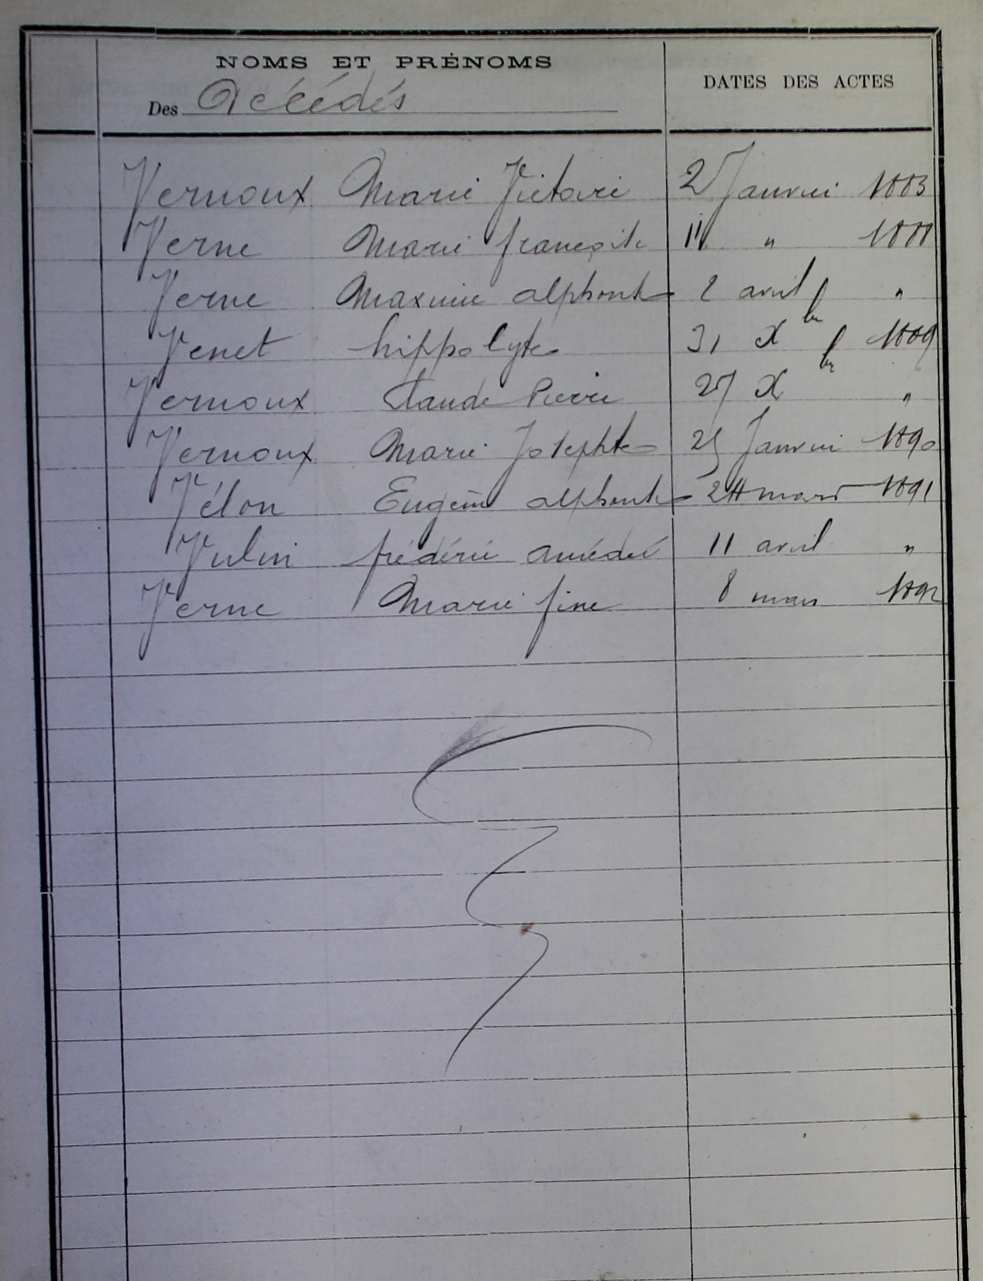 NOMS ET PRÉNOMS
DATES DES ACTES
Des Décédés
Vernoux Marie Victoire 2 Janvier 1883
Verne Marie françoise 11 " 1888
Verne Maxime alphonse 2 avril "
Venet hippolyte 31 Xbre 1889
Vernoux Claude Pierre 27 Xbre "
Vernoux Marie Josephte 25 Janvier 1890
Vélon Eugène alphonse 24 mars 1891
Vulin frédéric amédée 11 avril "
Verne Marie fine 8 mars 1892